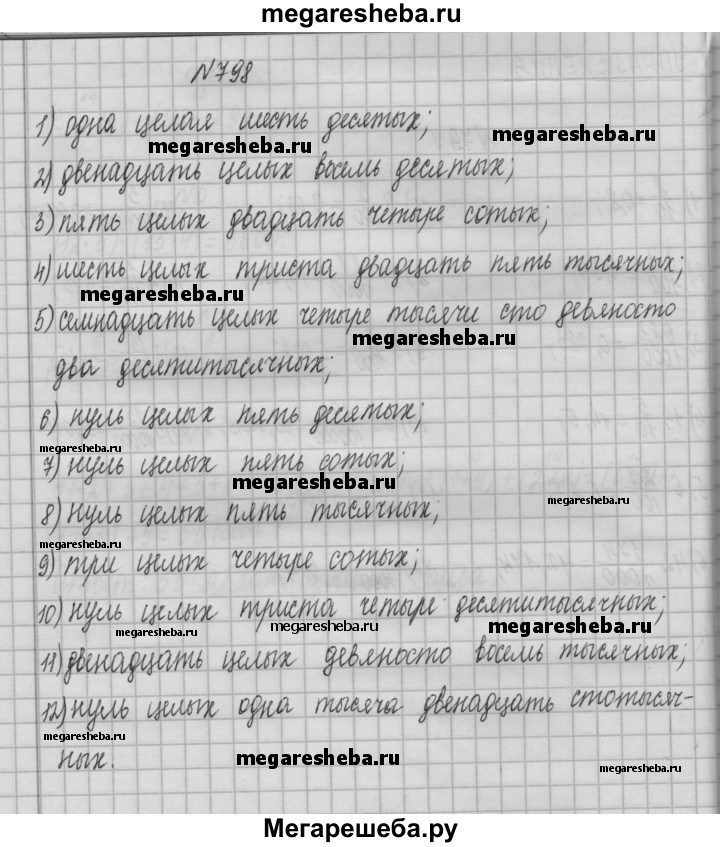 megaresheba.ru
№798
1) одна целая шесть десятых;
megaresheba.ru
megaresheba.ru
2) двенадцать целых восемь десятых;
3) пять целых двадцать четыре сотых;
4) шесть целых триста двадцать пять тысячных;
megaresheba.ru
5) семнадцать целых четыре тысячи сто девяносто
megaresheba.ru
два десятитысячных;
6) нуль целых пять десятых;
megaresheba.ru
7) нуль целых пять сотых;
megaresheba.ru
megaresheba.ru
8) нуль целых пять тысячных;
megaresheba.ru
9) три целых четыре сотых;
10) нуль целых триста четыре десятитысячных;
megaresheba.ru
megaresheba.ru
megaresheba.ru
11) двенадцать целых девяносто восемь тысячных;
12) нуль целых одна тысяча двенадцать стотысяч-
megaresheba.ru
ных.
megaresheba.ru
megaresheba.ru
Мегарешеба.ру